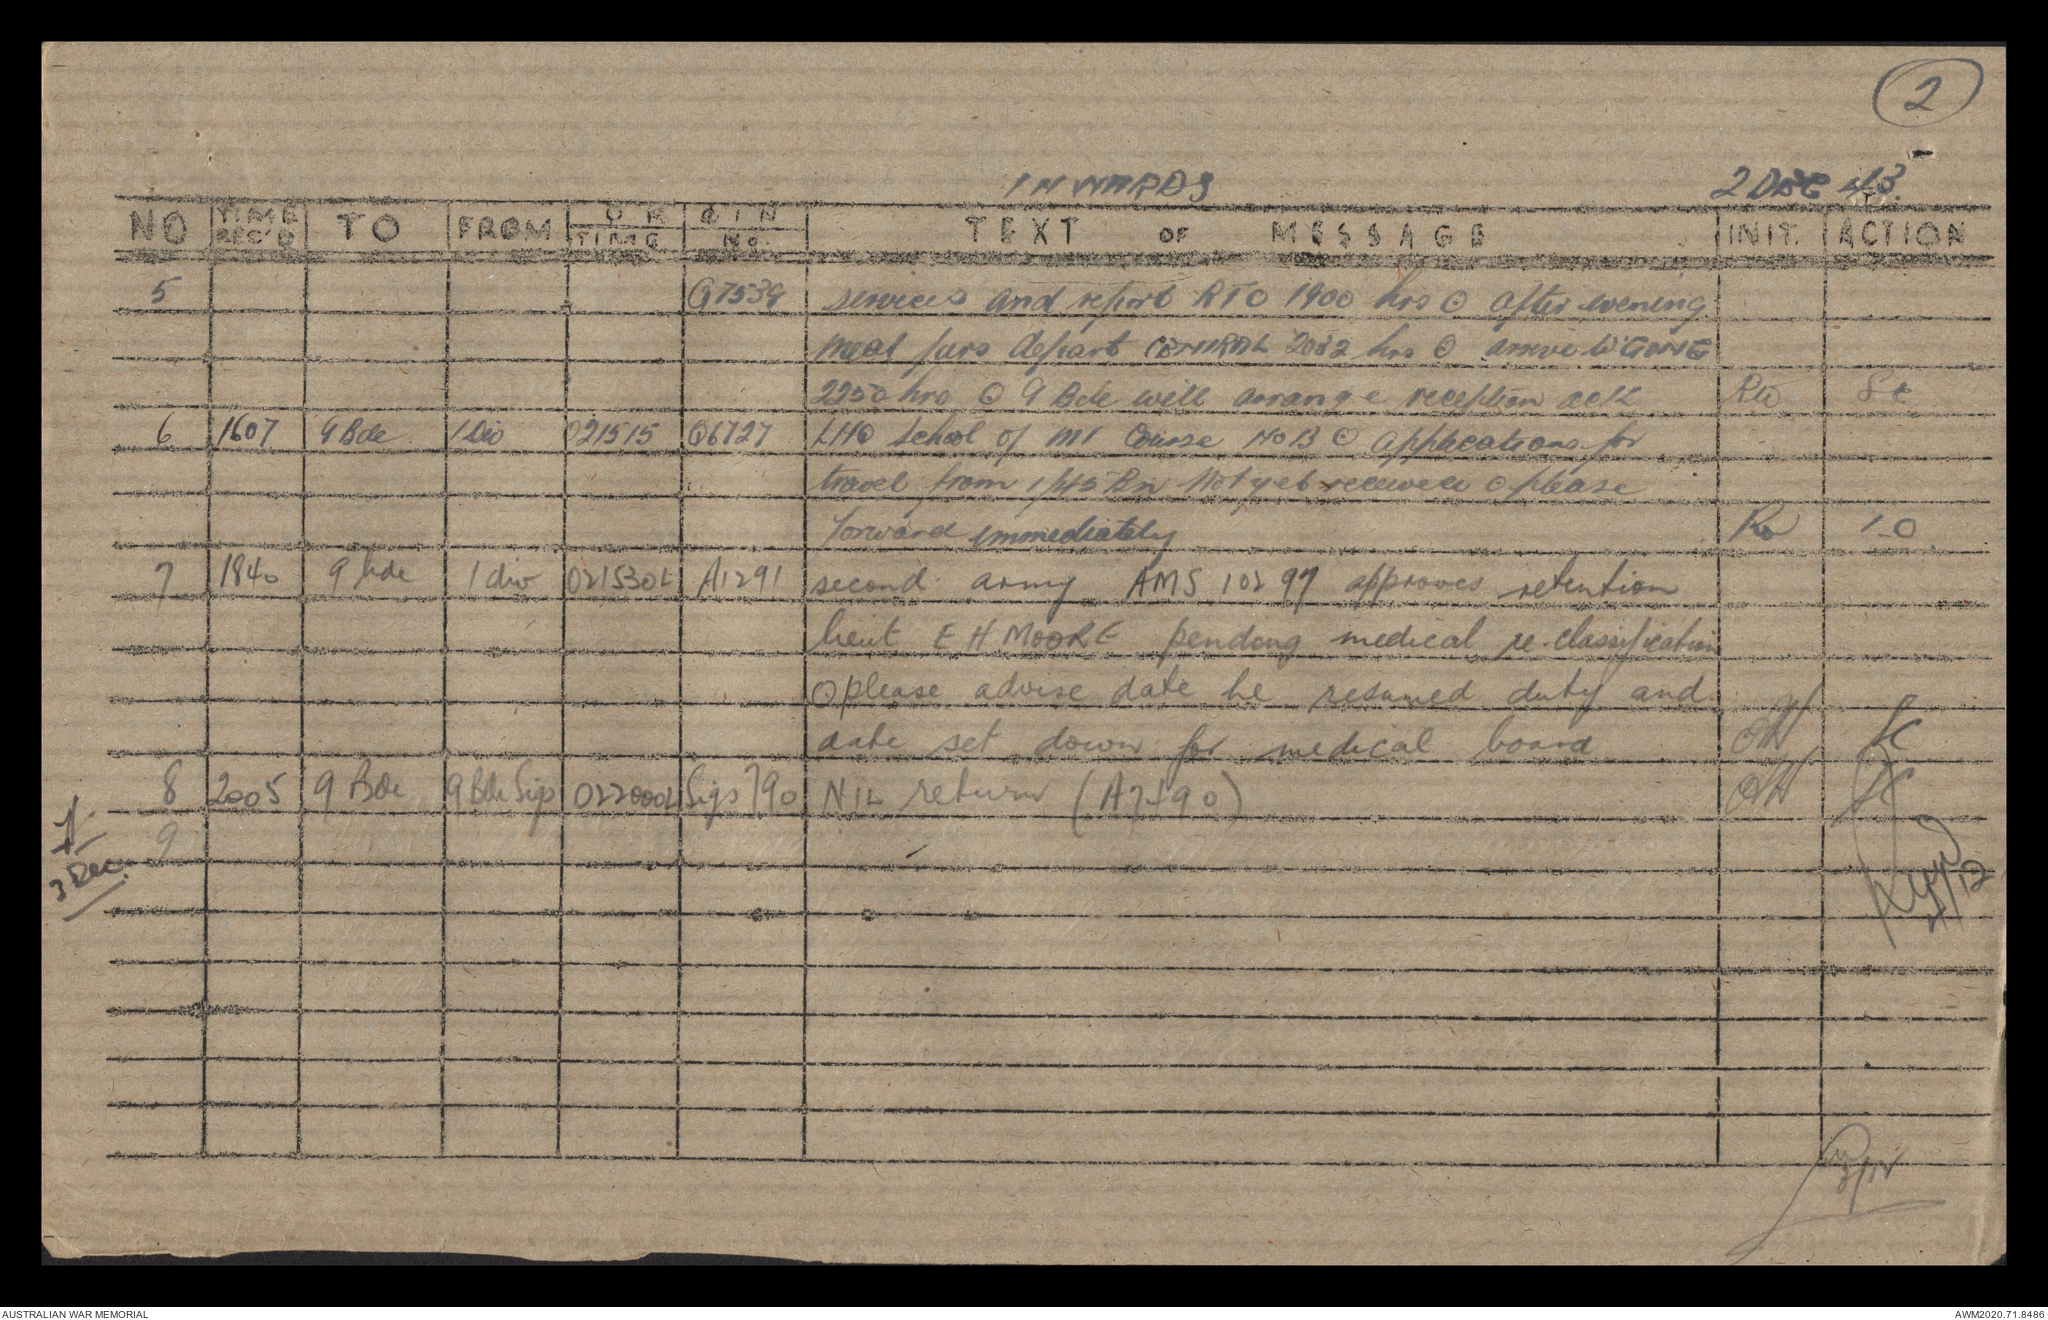 2
INWARDS 2 DEC 43.
NO TIME REC'D TO FROM OR TIME GIN No. TEXT OF MESSAGE INIT. ACTION
5 Q7539 services and report RTO 1900 hrs ⊙ after evening
meal pers depart CENTRAL 2032 hrs ⊙ arrive W'GONG
2250 hrs ⊙ 9 Bde will arrange reception ack
6 1607 9 Bde 1 Div 021515 Q6727 LHQ School of MT Course No 13 ⊙ applications for
travel from 1/45 Bn not yet received ⊙ please
forward immediately
7 1840 9 bde 1 div 021530L A1291 second army AMS 10297 approves retention
lieut E H MOORE pending medical re-classification
⊙ please advise date he resumed duty and
date set down for medical board SC
8 2005 9 Bde 9 Bde Sigs 022000L Sigs 790 NIL return (A7490) SC
9
3 Dec.
4/12
3/12
AUSTRALIAN WAR MEMORIAL AWM2020.71.8486